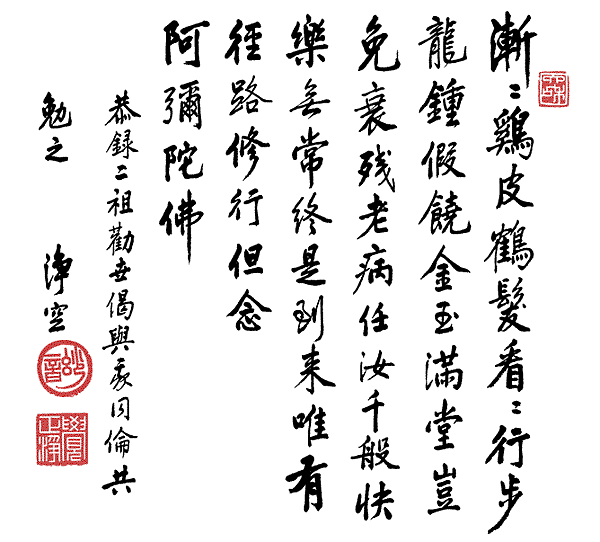 漸〻鷄皮鶴髮看〻行步
龍鍾假饒金玉滿堂豈
免衰残老病任汝千般快
樂無常終是到来唯有
徑路修行但念
阿彌陀佛
恭録二祖勸世偈與衆同倫共
勉之 淨空
妙音